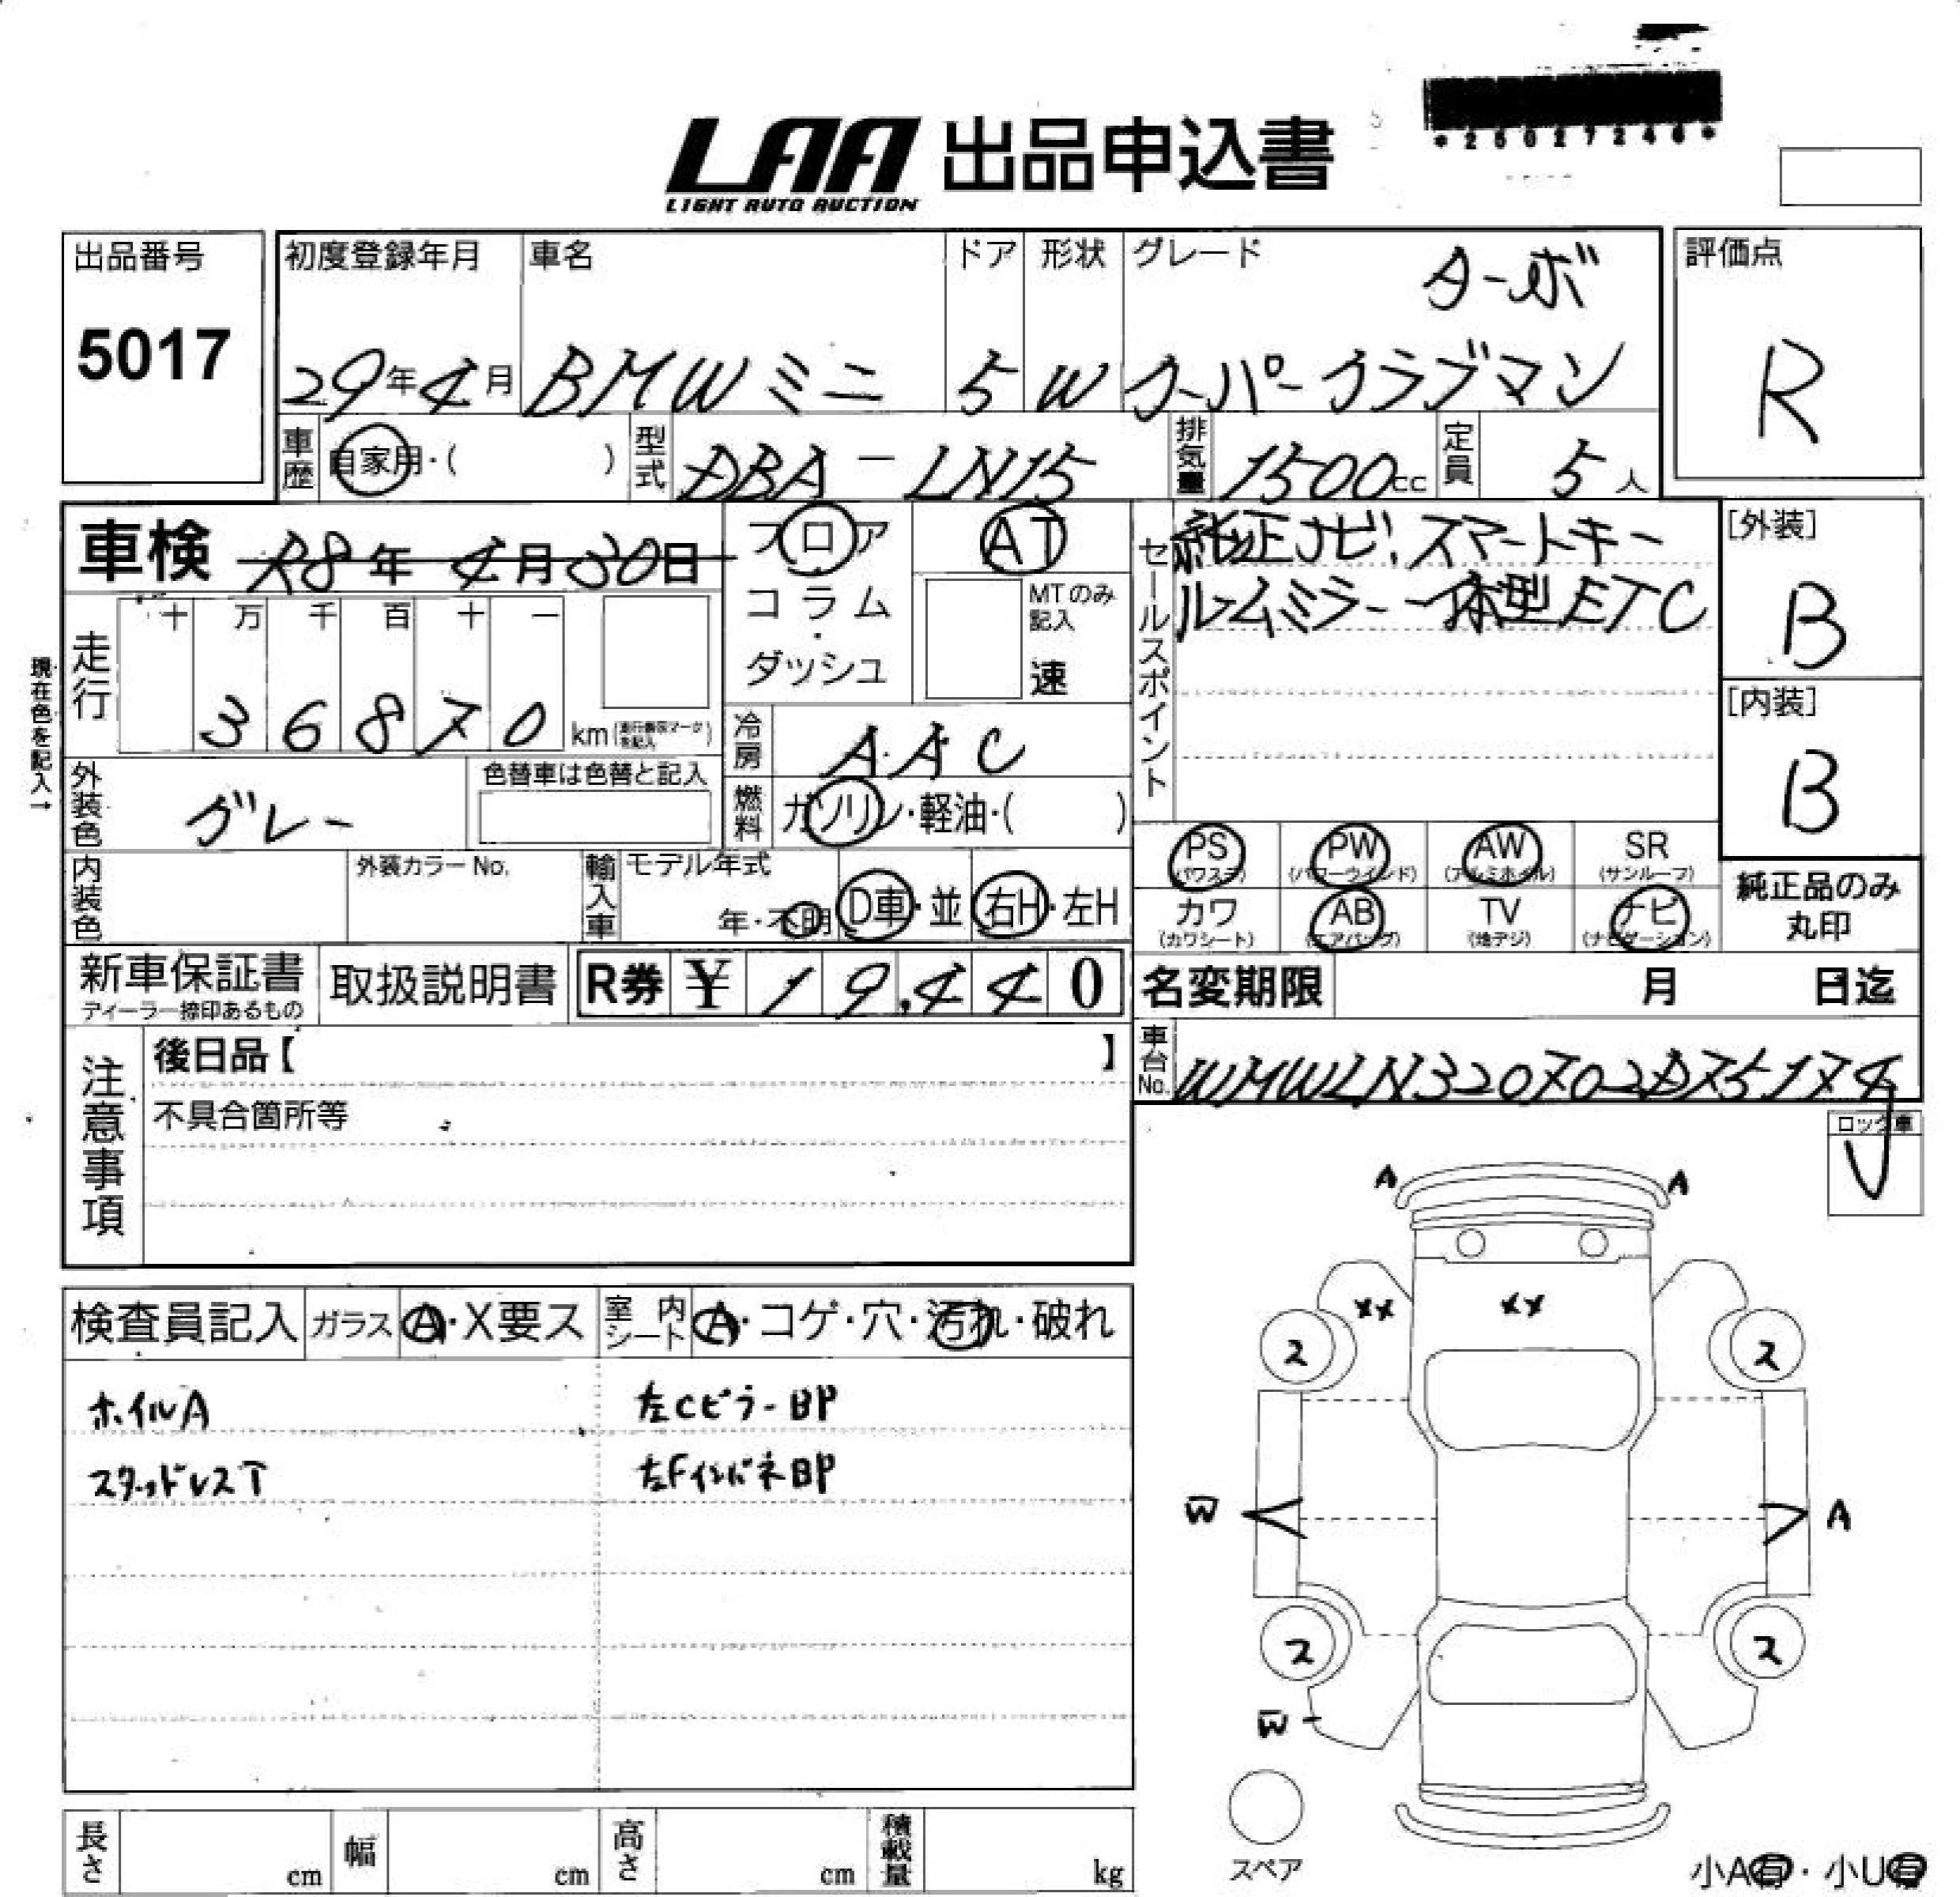 *26027246*
LAA 出品申込書
LIGHT AUTO AUCTION
出品番号
5017
初度登録年月
29年4月
車名
BMWミニ
ドア
5
形状
W
グレード
ターボ
クーパークラブマン
評価点
R
車歴
自家用・( )
型式
DBA-LN15
排気量
1500cc
定員
5人
車検 R8年4月30日
フロア
コラム
・
ダッシュ
AT
MTのみ
記入
速
セールスポイント
純正ナビ、スマートキー
ルームミラー一体型ETC
[外装]
B
[内装]
B
現在色を記入→
走行
十 万 千 百 十 一
3 6 8 7 0 km
冷房
AAC
燃料
ガソリン・軽油・( )
外装色
グレー
色替車は色替と記入
内装色
外装カラーNo.
輸入車
モデル年式
年・不明
D車・並
右H・左H
PS (パワステ)
PW (パワーウインド)
AW (アルミホイル)
SR (サンルーフ)
カワ (カワシート)
AB (エアバッグ)
TV (地デジ)
ナビ (ナビゲーション)
純正品のみ
丸印
新車保証書
ディーラー捺印あるもの
取扱説明書
R券 ¥ 19,440
名変期限 月 日迄
車台No.
WMWLN320702D75174
注意事項
後日品【 】
不具合箇所等
ロック車
レ
検査員記入
ガラス
A・X要ス
室内シート
A・コゲ・穴・汚れ・破れ
ホイルA
左CピラーBP
スタッドレスT
左FインパネBP
A A
XX XX
2 2
W A
2 2
W
スペア
長さ cm
幅 cm
高さ cm
積載量 kg
小A有・小U有